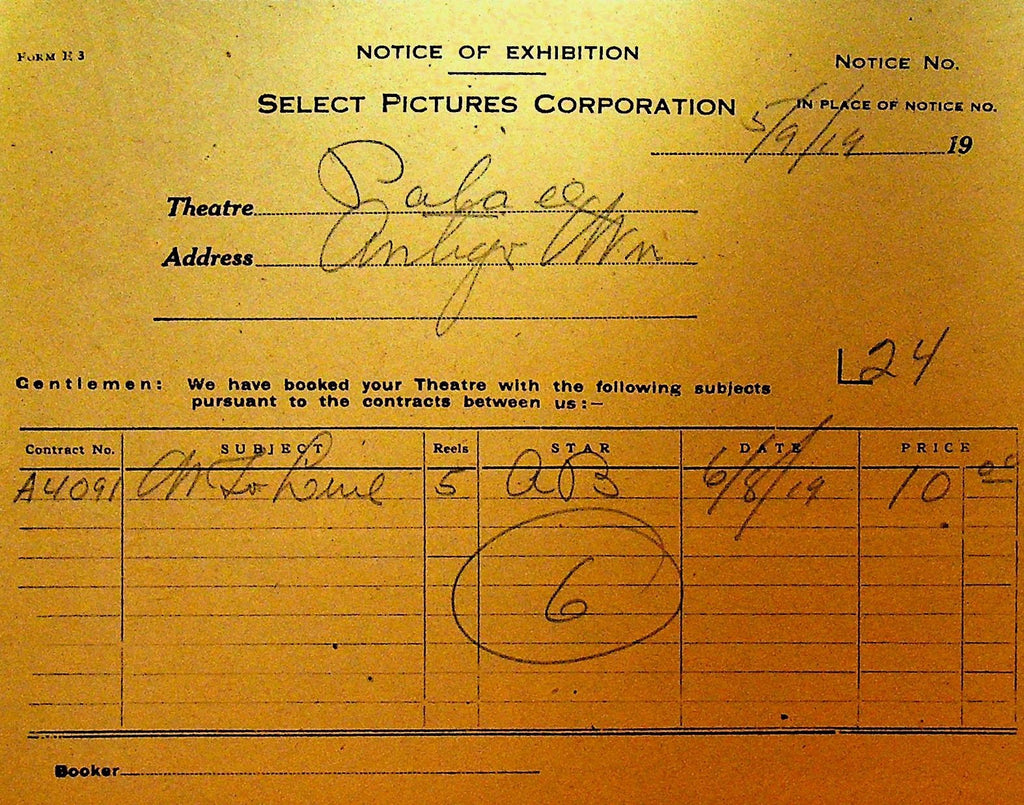 FORM E 3
NOTICE OF EXHIBITION
NOTICE NO.
SELECT PICTURES CORPORATION
IN PLACE OF NOTICE NO.
5/9/19 19
Theatre Palace
Address Antigo Wn
L24
Gentlemen: We have booked your Theatre with the following subjects
pursuant to the contracts between us:—
Contract No. SUBJECT Reels STAR DATE PRICE
A4091 5 AB 6/8/19 10 00
6
Booker